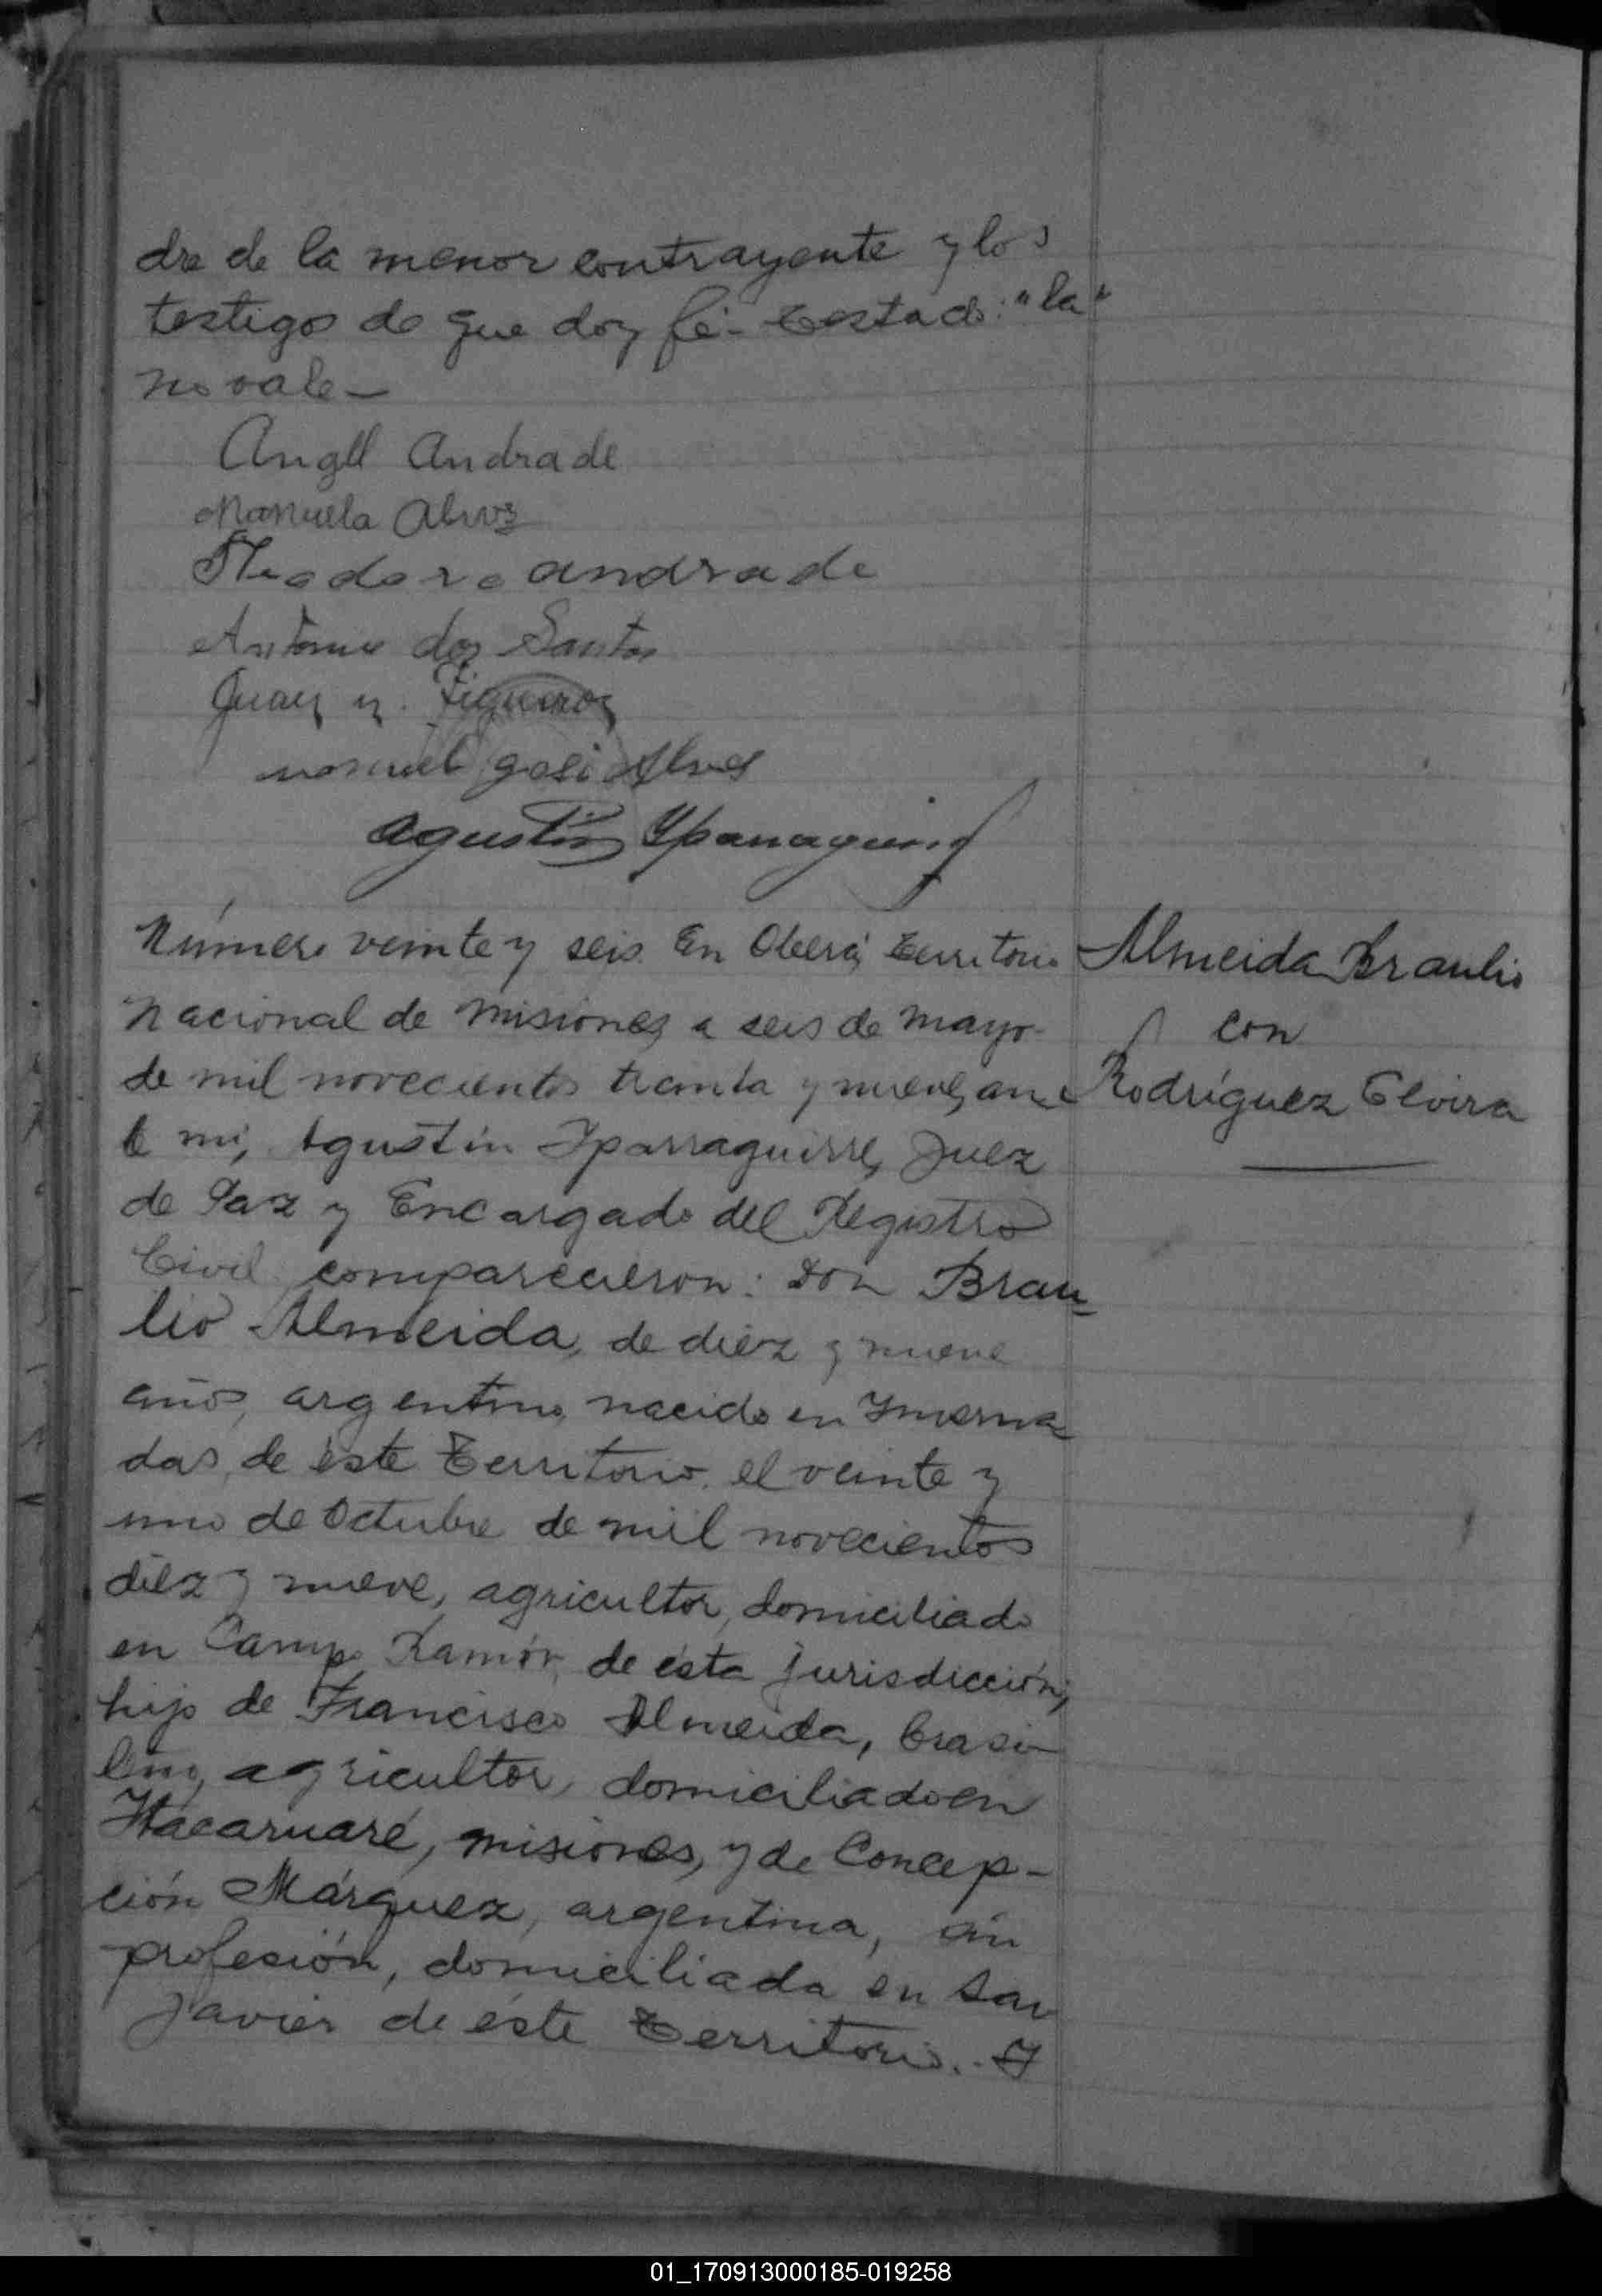 dre de la menor contrayente y los
testigos de que doy fé - Testado: "la"
no vale -
Angel Andrade
Manuela Alvez
Theodoro Andrade
Antonio dos Santos
Juan Figueroa
manuel Alves
Agustín Yparraguirre
Número veinte y seis. En Oberá, Territorio
Nacional de Misiones, a seis de Mayo
de mil novecientos treinta y nueve, an
te mi, Agustín Yparraguirre, Juez
de Paz y Encargado del Registro
Civil comparecieron: Don Brau
lio Almeida, de diéz y nueve
años, argentino, nacido en Ynverna
das, de éste Territorio, el veinte y
uno de Octubre de mil novecientos
diéz y nueve, agricultor, domiciliado
en Campo Ramón, de ésta jurisdicción;
hijo de Francisco Almeida, brasi
leño, agricultor, domiciliado en
Itacaruaré, Misiones, y de Concep-
ción Márquez, argentina, sin
profesión, domiciliada en San
Javier de éste Territorio. - Y
Almeida Braulio
con
Rodríguez Elvira
01_170913000185-019258